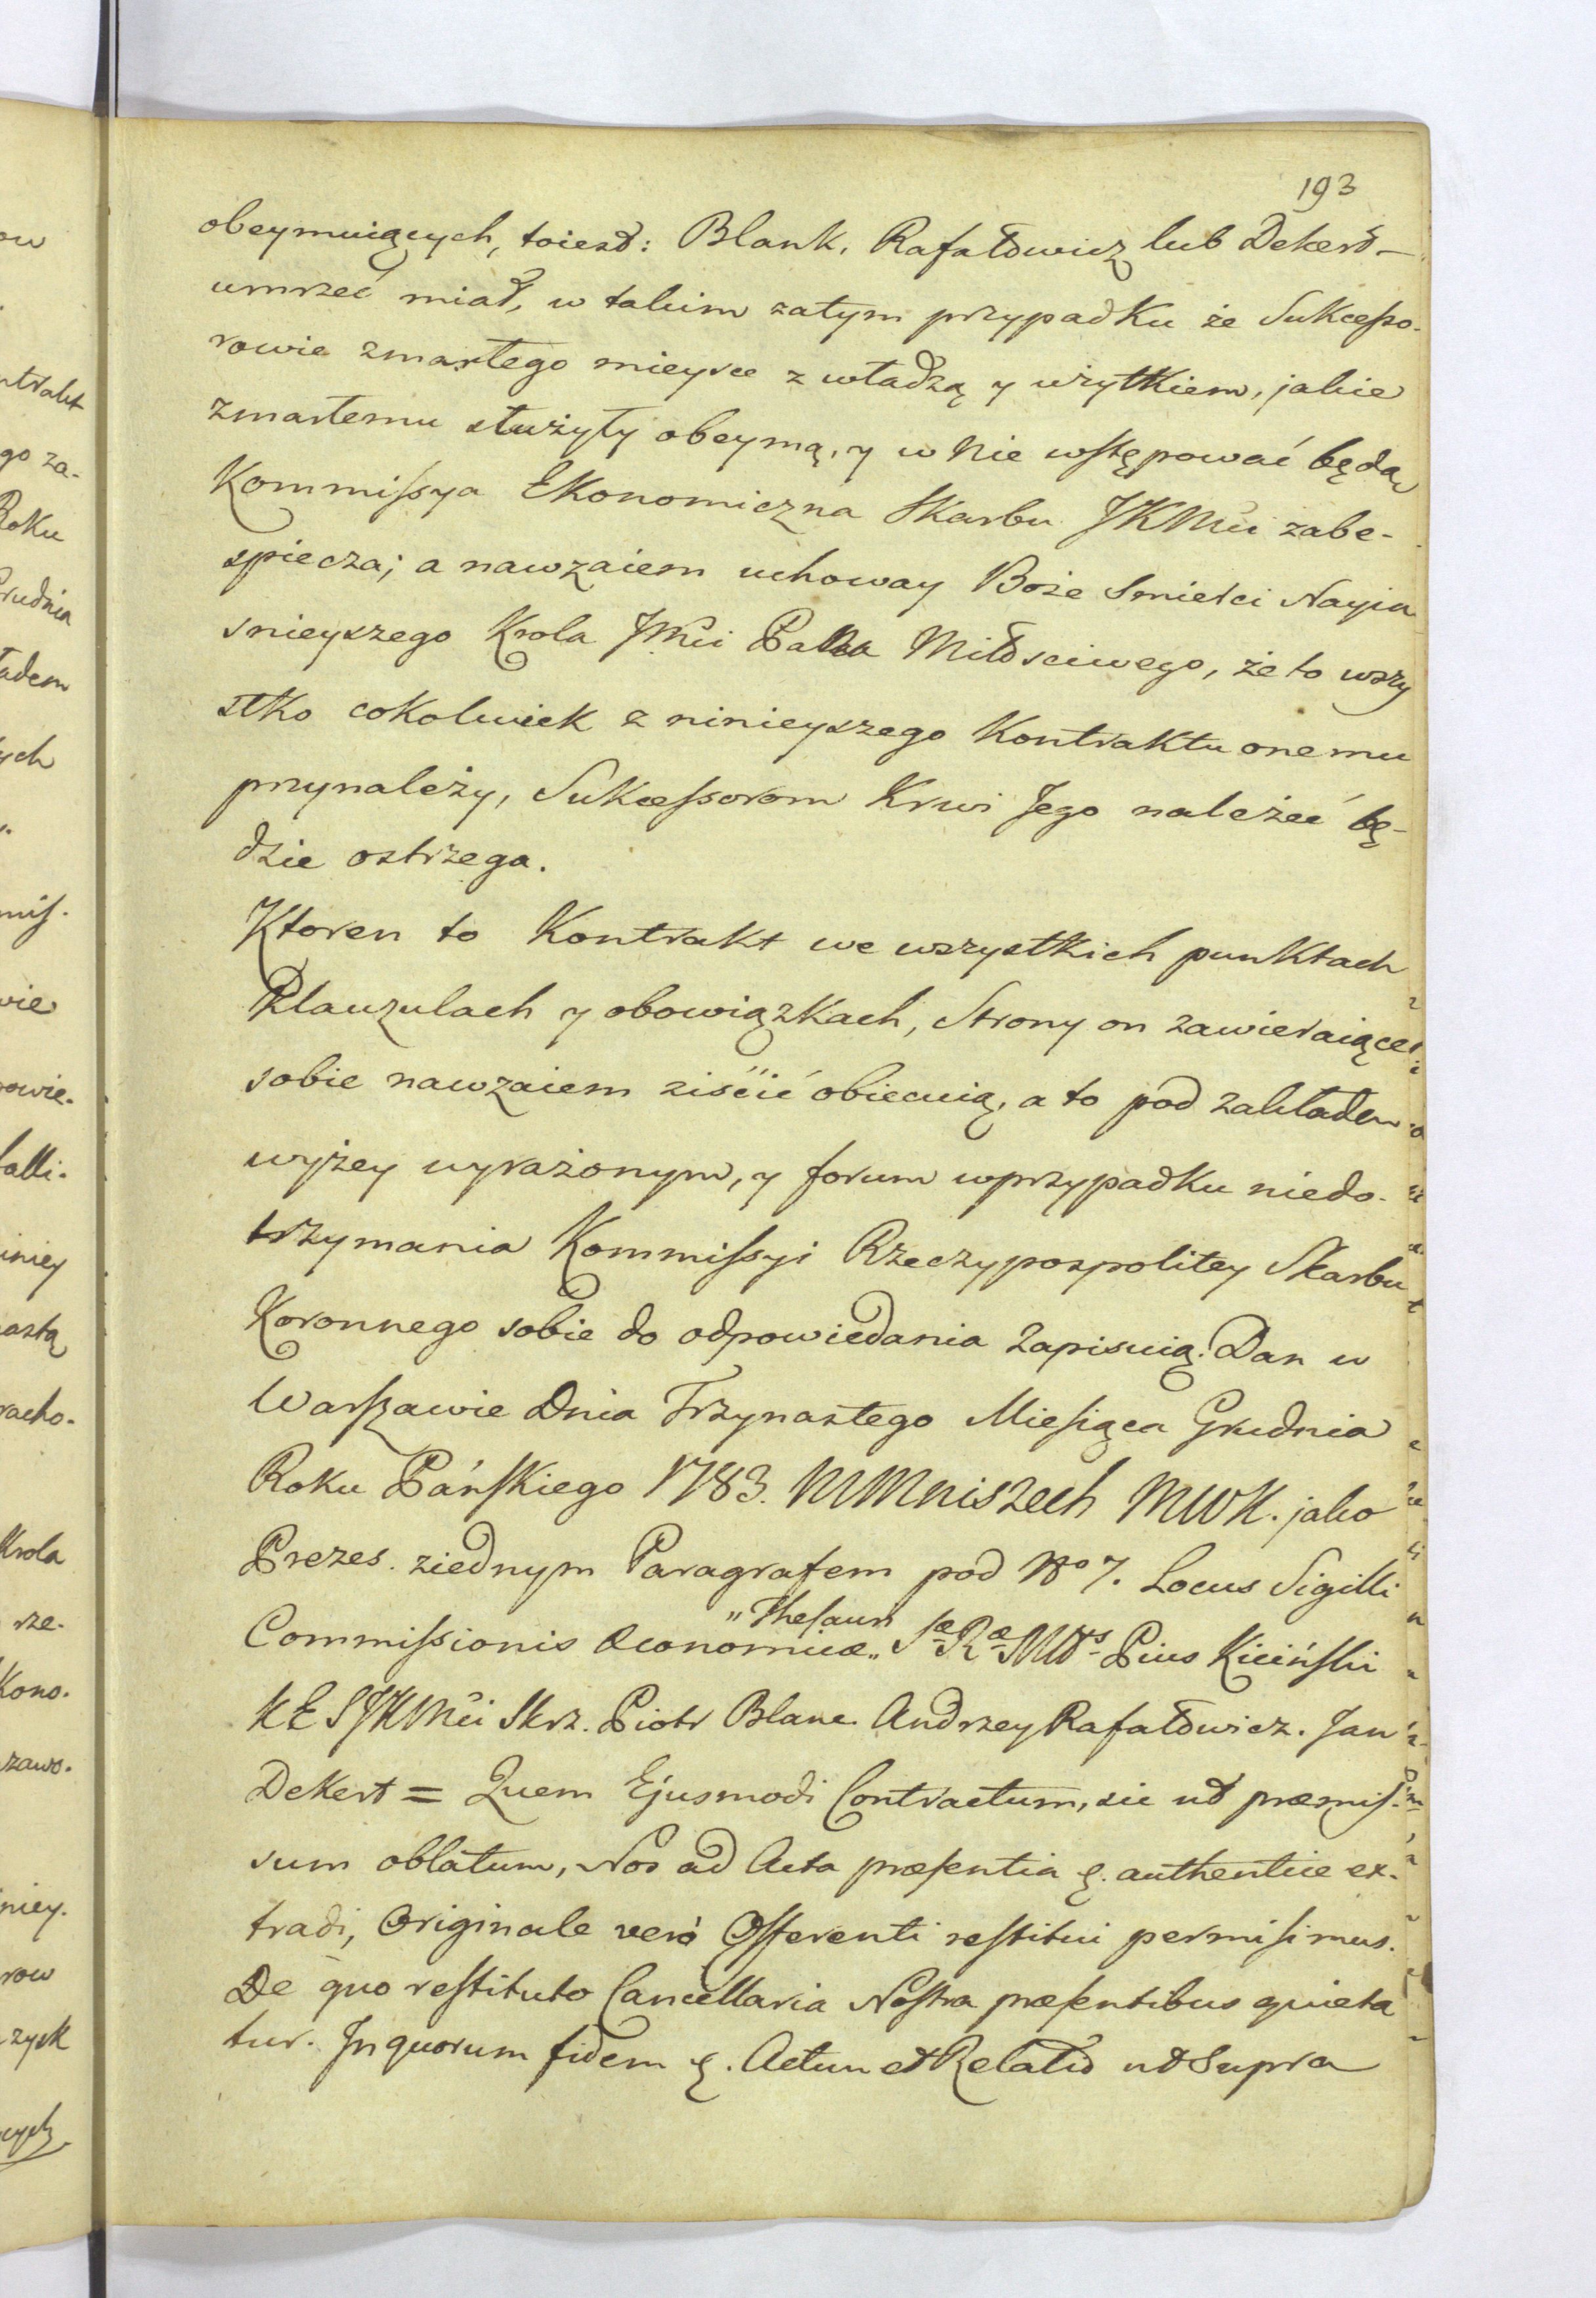 193
obeymuiących, toiest: Blank, Rafałowicz lub Dekert –
umrzeć miał, w takim zatym przypadku że Sukcesso-
rowie zmarłego mieysce z władzą y użytkiem, jakie
zmarłemu służyły obeymą, y w nie wstępować będą,
Kommissya Ekonomiczna Skarbu JKMci zabe-
spiecza; a nawzaiem uchoway Boże Smierci Nayia
snieyszego Krola JMci Pana Miłosciwego, że to wszy
stko cokolwiek z ninieyszego Kontraktu onemu
przynależy, Sukcessorom Krwi Jego należeć bę-
dzie ostrzega.
Ktoren to Kontrakt we wszystkich punktach
Klauzulach y obowiązkach, Strony on zawieraiące
sobie nawzaiem ziścić obiecuią, a to pod zakładem
wyżey wyrażonym, y forum wprzypadku niedo-
trzymania Kommissyi Rzeczypospolitey Skarbu
Koronnego sobie do odpowiedania zapisuią. Dan w
Warszawie Dnia Trzynastego Miesiąca Grudnia
Roku Pańskiego 1783. MMniszech MWK. jako
Prezes. ziednym Paragrafem pod No 7. Locus Sigilli
Commissionis Œconomicæ „Thesauri„ Sæ Ræ Mttis Pius Kiciński
KESJKMci Skrz. Piotr Blanc. Andrzey Rafałowicz. Jan
Dekert = Quem Ejusmodi Contractum, sic ut præmis-
sum oblatum, Nos ad Acta præsentia &. authentice ex-
tradi, Originale verò Offerenti restitui permisimus.
De quo restituto Cancellaria Nostra præsentibus quieta
tur. In quorum fidem &. Actum et Relatio ut Supra